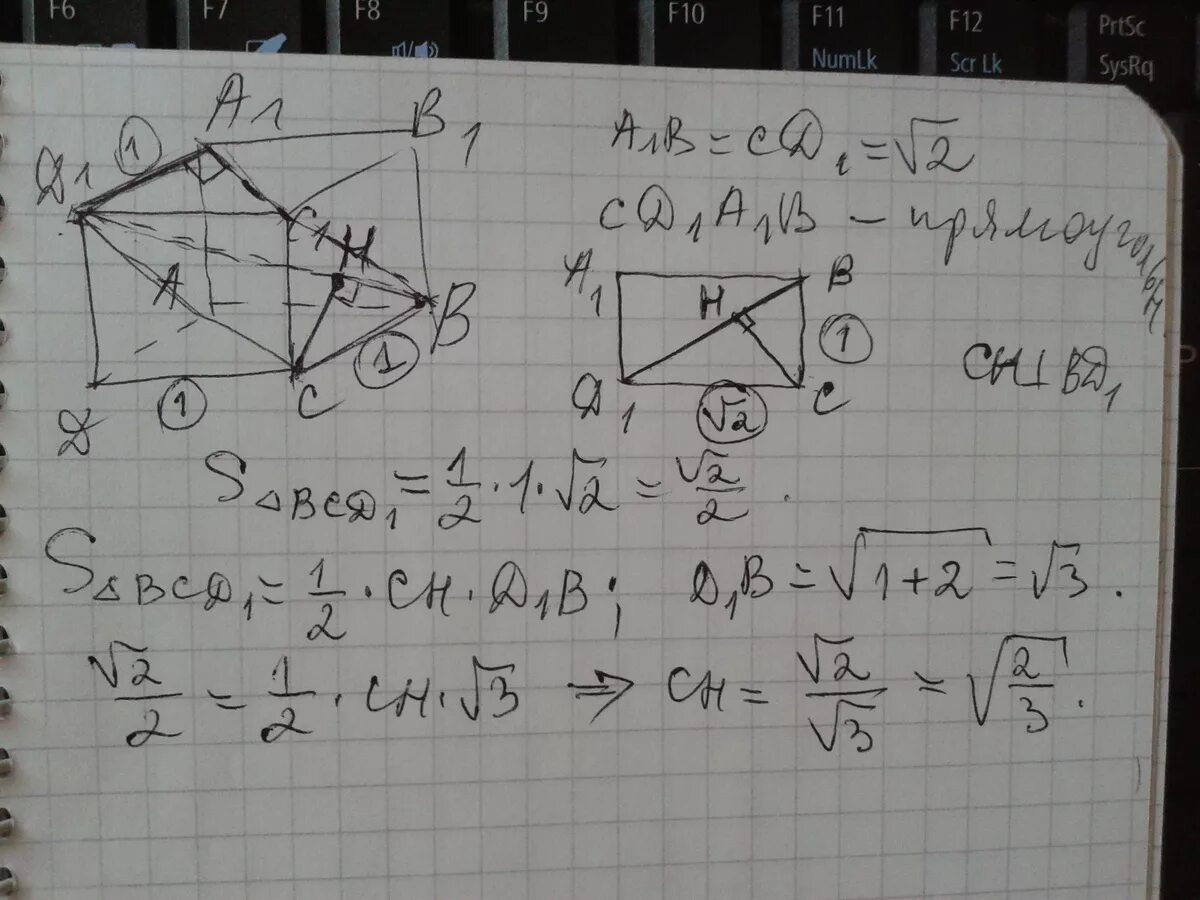 F6 F7 F8 F9 F10 F11 F12 PrtSc
NumLk Scr Lk SysRq
A1 B1
D1 1
C1 H
A B
1
D 1 C
A₁B = CD₁ = √2
CD₁A₁B – прямоугольн
A₁ B
H 1
D₁ √2 C
CH⊥BD₁
S△BCD₁ = 1/2 · 1 · √2 = √2/2 .
S△BCD₁ = 1/2 · CH · D₁B ; D₁B = √(1+2) = √3 .
√2/2 = 1/2 · CH · √3 ⇒ CH = √2/√3 = √(2/3) .